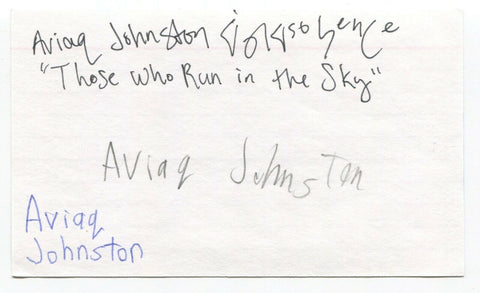 Aviaq Johnston
"Those who Run in the Sky"
Aviaq Johnston
Aviaq
Johnston